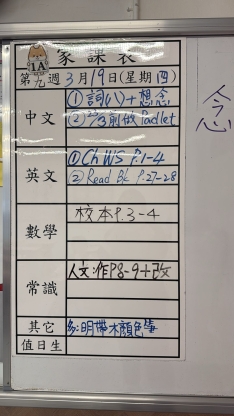 家課表
1A
第九週 3月19日(星期四)
中文
① 詞(八)+想念
② 23/3前做Padlet
英文
① Ch WS P.1-4
② Read Bk P.27-28
數學
校本P.3-4
常識
人文:作P8-9+改
其它
明帶木顏色筆
值日生
念